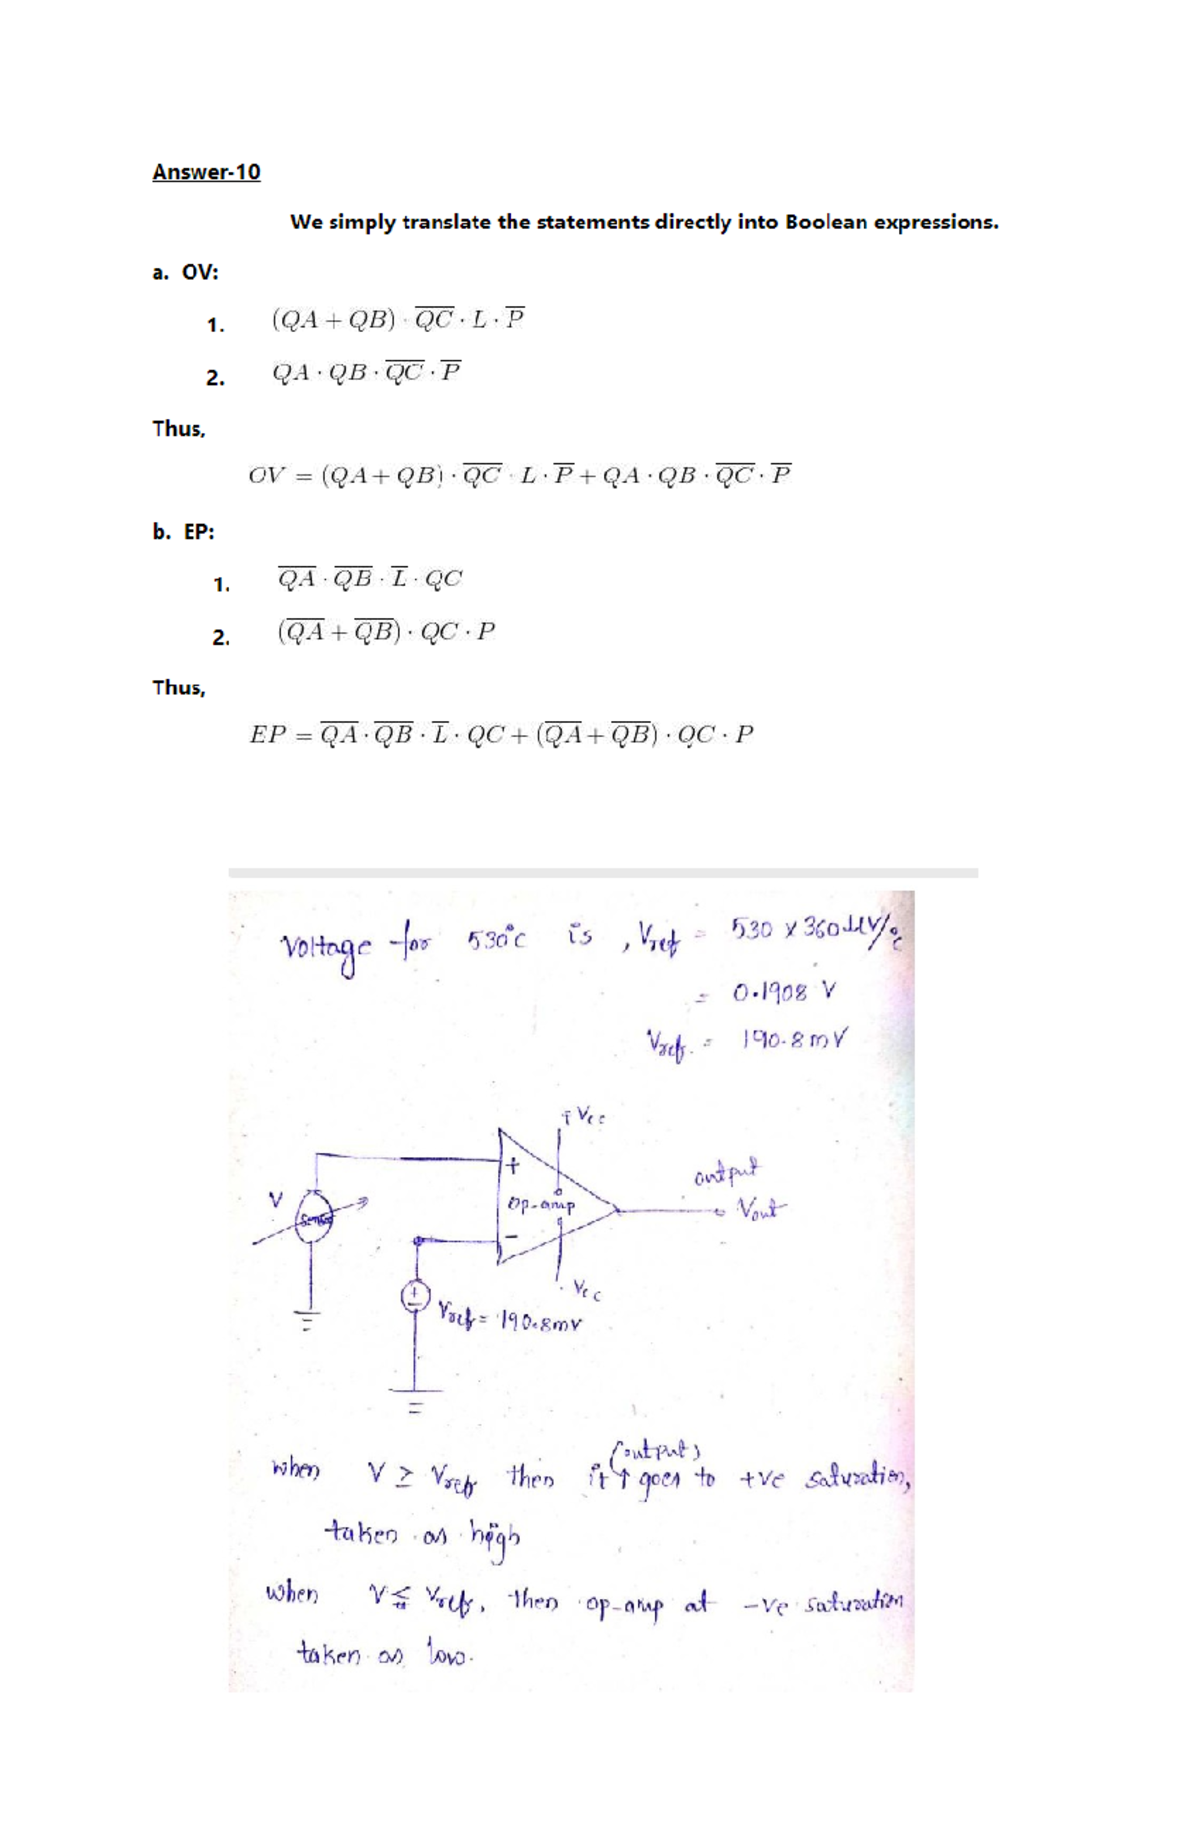 Answer-10
We simply translate the statements directly into Boolean expressions.
a. OV:
1. (QA + QB) · Q̅C̅ · L · P̅
2. QA · QB · Q̅C̅ · P̅
Thus,
OV = (QA + QB) · Q̅C̅ · L · P̅ + QA · QB · Q̅C̅ · P̅
b. EP:
1. Q̅A̅ · Q̅B̅ · L̅ · QC
2. (Q̅A̅ + Q̅B̅) · QC · P
Thus,
EP = Q̅A̅ · Q̅B̅ · L̅ · QC + (Q̅A̅ + Q̅B̅) · QC · P
Voltage for 530°c is , Vref = 530 x 360 µV/°c
= 0.1908 V
Vref. = 190.8 mV
+ Vcc
+
output
V
Sensor
Op-amp
Vout
-
- Vcc
+
Vref = 190.8mv
(output)
when V ≥ Vref then it ↑ goes to +ve saturation,
taken as high
when V ≤ Vref, then op-amp at -ve saturation
taken as low.